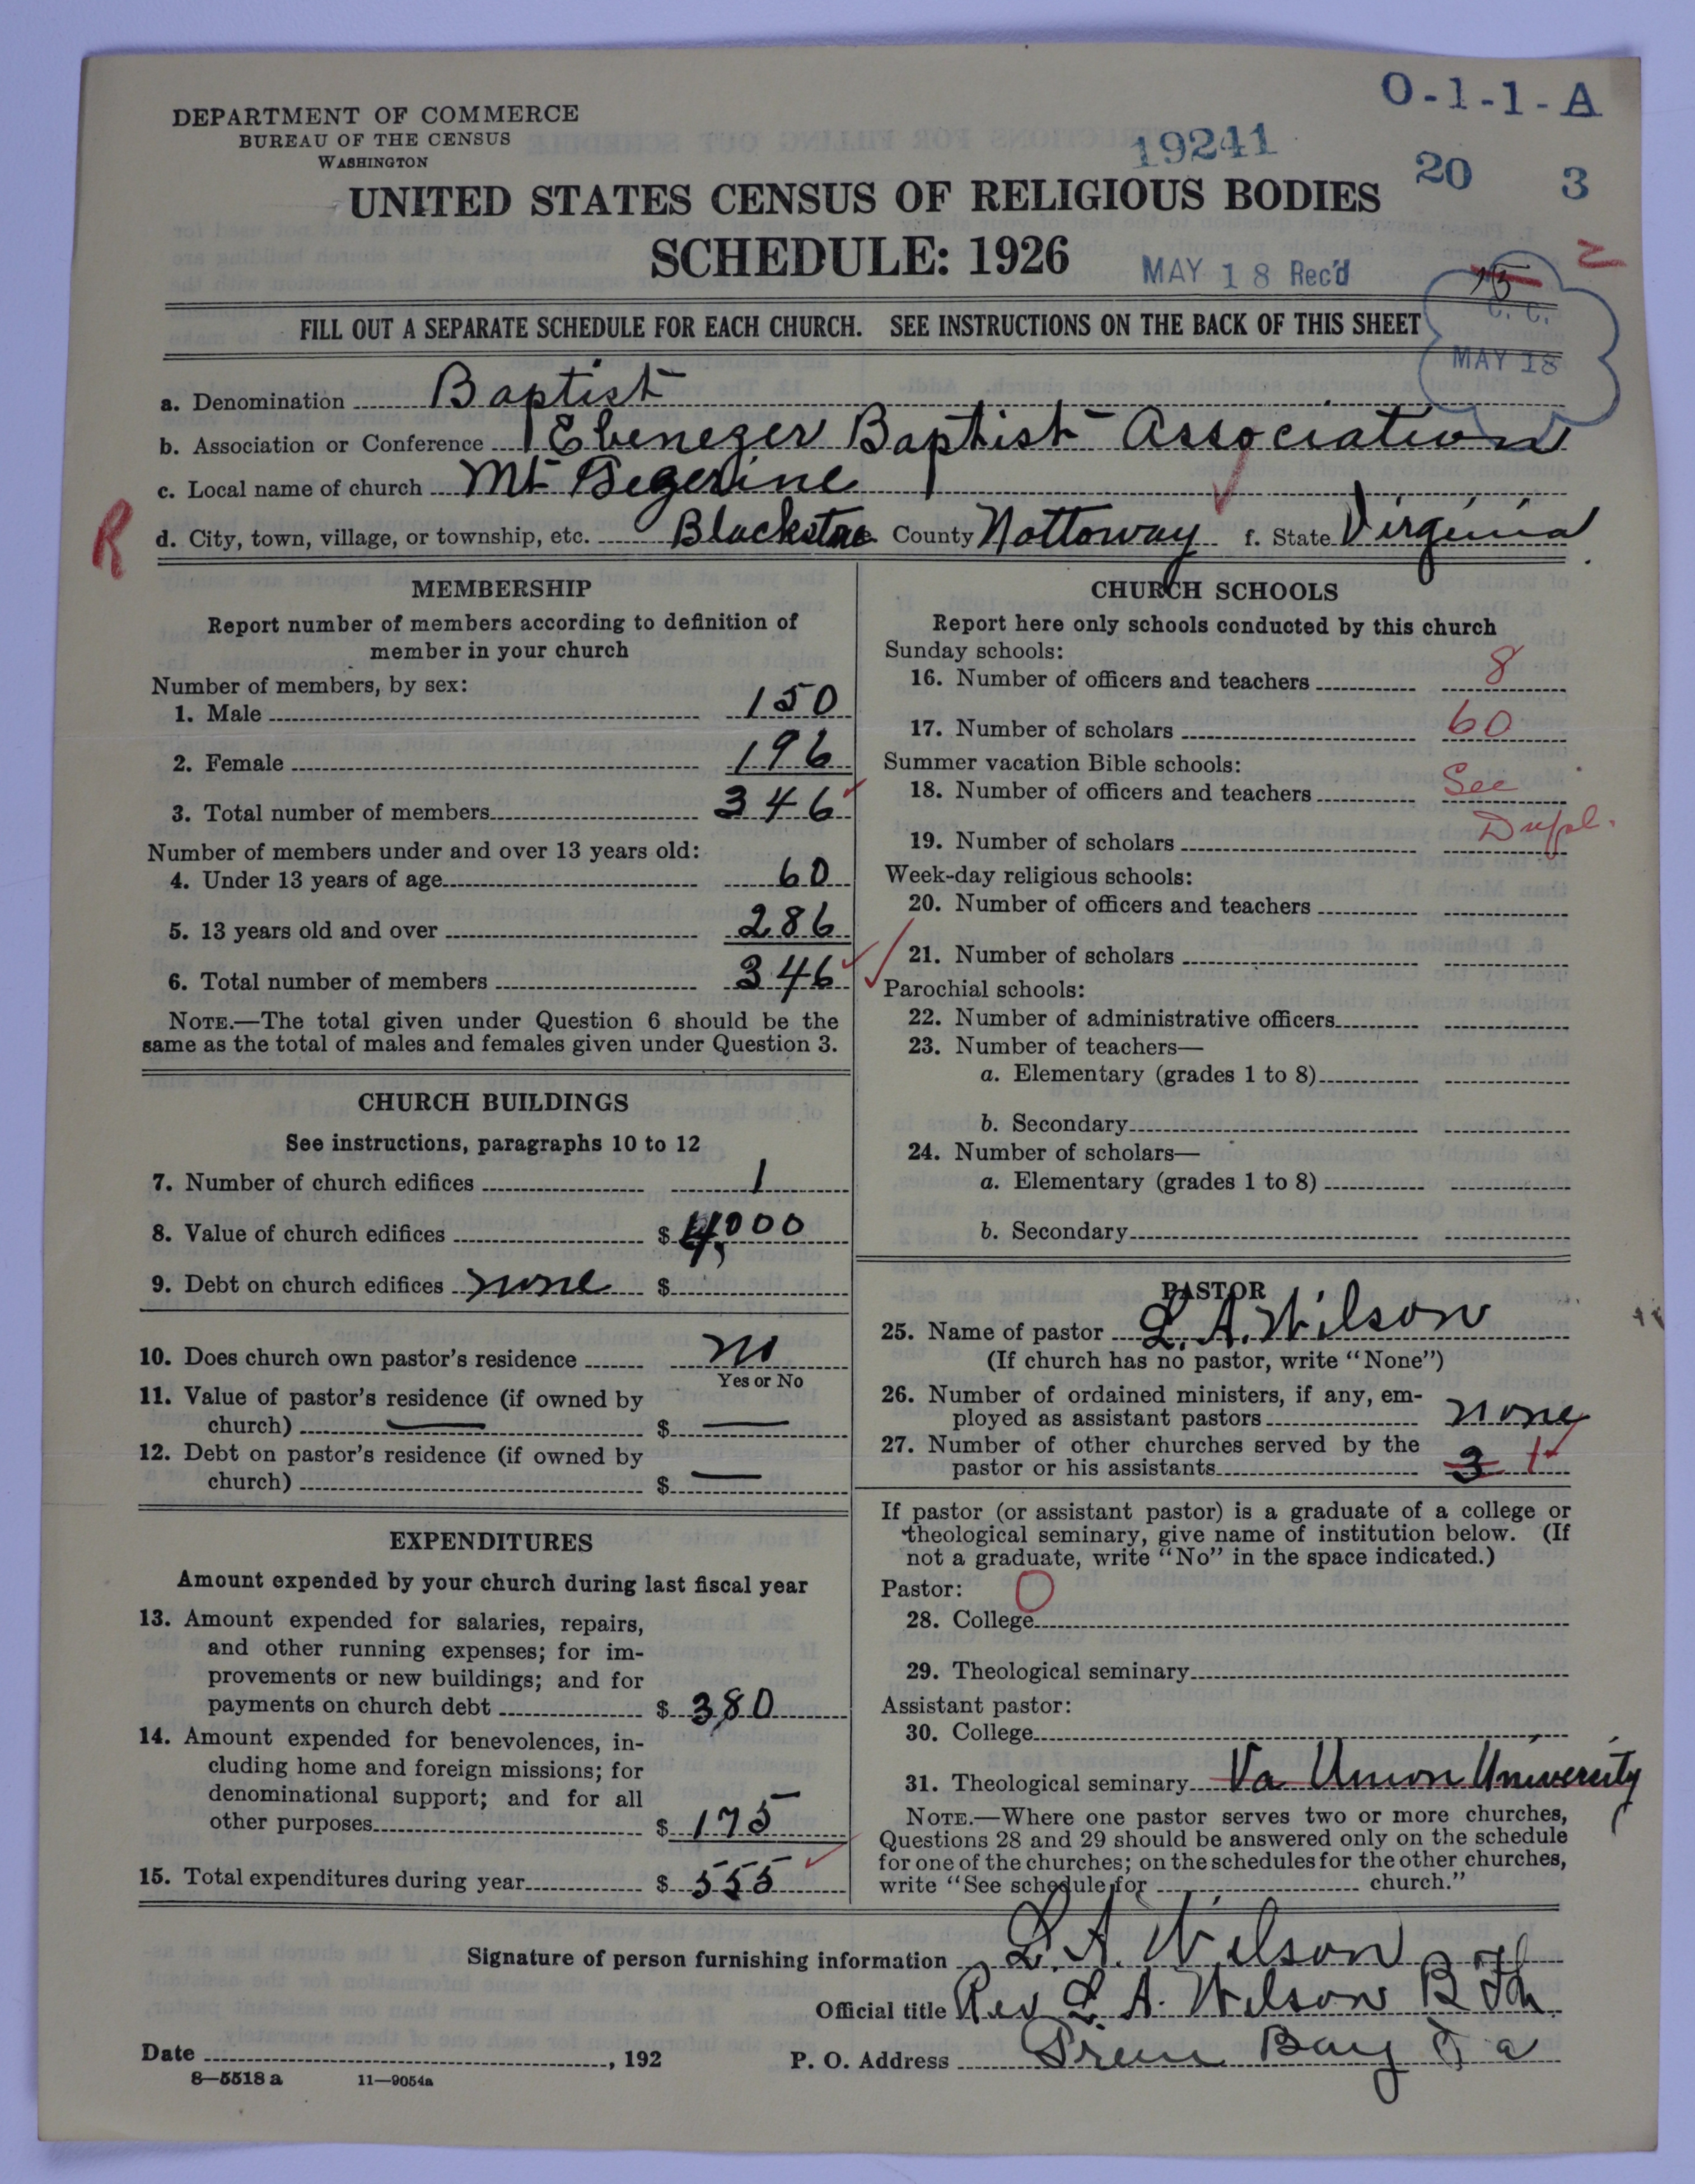 O-1-1-A
DEPARTMENT OF COMMERCE
BUREAU OF THE CENSUS
WASHINGTON
19241
20 3
UNITED STATES CENSUS OF RELIGIOUS BODIES
SCHEDULE: 1926
MAY 18 Rec'd
15
C. C.
MAY 18
FILL OUT A SEPARATE SCHEDULE FOR EACH CHURCH. SEE INSTRUCTIONS ON THE BACK OF THIS SHEET
a. Denomination Baptist
b. Association or Conference Ebenezer Baptist Association
c. Local name of church Mt
R
d. City, town, village, or township, etc. Blackstone County Nottoway f. State Virginia
MEMBERSHIP
Report number of members according to definition of
member in your church
Number of members, by sex:
1. Male 150
2. Female 196
3. Total number of members 346
Number of members under and over 13 years old:
4. Under 13 years of age 60
5. 13 years old and over 286
6. Total number of members 346
NOTE.—The total given under Question 6 should be the
same as the total of males and females given under Question 3.
CHURCH BUILDINGS
See instructions, paragraphs 10 to 12
7. Number of church edifices 1
8. Value of church edifices $ 4,000
9. Debt on church edifices none $
10. Does church own pastor's residence no
Yes or No
11. Value of pastor's residence (if owned by
church) — $ —
12. Debt on pastor's residence (if owned by
church) $ —
EXPENDITURES
Amount expended by your church during last fiscal year
13. Amount expended for salaries, repairs,
and other running expenses; for im-
provements or new buildings; and for
payments on church debt $ 380
14. Amount expended for benevolences, in-
cluding home and foreign missions; for
denominational support; and for all
other purposes $ 175
15. Total expenditures during year $ 555
CHURCH SCHOOLS
Report here only schools conducted by this church
Sunday schools:
16. Number of officers and teachers 8
17. Number of scholars 60
Summer vacation Bible schools:
18. Number of officers and teachers See
19. Number of scholars Dupl.
Week-day religious schools:
20. Number of officers and teachers
21. Number of scholars
Parochial schools:
22. Number of administrative officers
23. Number of teachers—
a. Elementary (grades 1 to 8)
b. Secondary
24. Number of scholars—
a. Elementary (grades 1 to 8)
b. Secondary
PASTOR
25. Name of pastor L. A. Wilson
(If church has no pastor, write "None")
26. Number of ordained ministers, if any, em-
ployed as assistant pastors none
27. Number of other churches served by the
pastor or his assistants 3 1
If pastor (or assistant pastor) is a graduate of a college or
theological seminary, give name of institution below. (If
not a graduate, write "No" in the space indicated.)
Pastor: O
28. College
29. Theological seminary
Assistant pastor:
30. College
31. Theological seminary Va Union University
NOTE.—Where one pastor serves two or more churches,
Questions 28 and 29 should be answered only on the schedule
for one of the churches; on the schedules for the other churches,
write "See schedule for church."
Signature of person furnishing information L. A. Wilson
Official title Rev L. A. Wilson B Th
Date , 192 P. O. Address Bay Va
8—5518 a 11—9054a